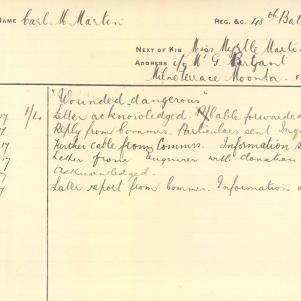 NAME Carl M. Martin REG. &C. 48th Bat
NEXT OF KIN Miss Myrtle Martin
ADDRESS c/o Mr G. Pergant
Milne Terrace Moonta. F
"Wounded, dangerous"
17 1/4 Letter acknowledged. R/Cable forwarded
17 Reply from Commrs. Particulars sent
17. Further cable from Commrs. Information s
17. Letter from enquirer with donation
Acknowledged.
7 Later report from Commrs. Information